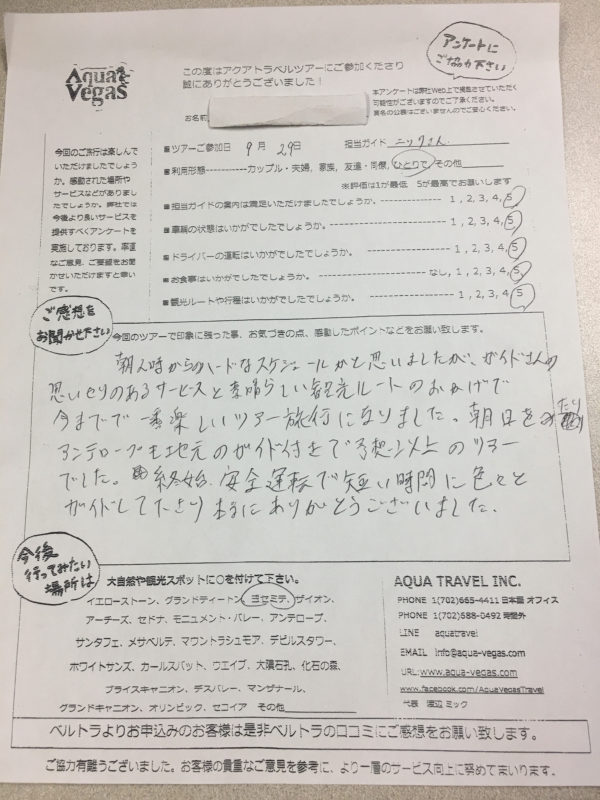 Aqua Vegas
この度はアクアトラベルツアーにご参加くださり
誠にありがとうございました！
アンケートに
ご協力下さい
本アンケートは弊社Web上で掲載させていただく
可能性がございますのでご了承ください。
実名の公表はございませんのでご安心ください。
お名前
今回のご旅行は楽しんで
いただけましたでしょう
か。感動された場所や
サービスなどがありまし
たでしょうか。弊社では
今後より良いサービスを
提供すべくアンケートを
実施しております。率直
なご意見、ご要望をお聞
かせいただけますと幸い
です。
■ツアーご参加日 9月 29日 担当ガイド ニックさん
■利用形態-----------カップル・夫婦、家族、友達・同僚、ひとりで、その他
※評価は1が最低 5が最高でお願いします
■担当ガイドの案内は満足いただけましたでしょうか。 ---------- 1, 2, 3, 4, 5
■車輌の状態はいかがでしたでしょうか。 ---------- 1, 2, 3, 4, 5
■ドライバーの運転はいかがでしたでしょうか。 ---------- 1, 2, 3, 4, 5
■お食事はいかがでしたでしょうか。 ---------- なし, 1, 2, 3, 4, 5
■観光ルートや行程はいかがでしたでしょうか。 ---------- 1, 2, 3, 4, 5
ご感想を
お聞かせ下さい
今回のツアーで印象に残った事、お気づきの点、感動したポイントなどをお願い致します。
からのハードなスケジュールかと思いましたが、ガイドさんの
思いやりのあるサービスと素晴らしい観光ルートのおかげで
今までで一番楽しいツアー旅行になりました。朝日を
アンテロープも地元のガイド付きで予想以上のツアー
でした。終始、安全運転で短い時間に色々と
ガイドして下さり本当にありがとうございました。
今後
行ってみたい
場所は
大自然や観光スポットに○を付けて下さい。
イエローストーン、グランドティートン、ヨセミテ、ザイオン、
アーチーズ、セドナ、モニュメント・バレー、アンテロープ、
サンタフェ、メサベルテ、マウントラシュモア、デビルスタワー、
ホワイトサンズ、カールスバット、ウエイブ、大隕石孔、化石の森、
ブライスキャニオン、デスバレー、マンザナール、
グランドキャニオン、オリンピック、セコイア その他
AQUA TRAVEL INC.
PHONE 1(702)665-4411 日本国 オフィス
PHONE 1(702)688-0492 時間外
LINE aquatravel
EMAIL info@aqua-vegas.com
URL:www.aqua-vegas.com
www.facebook.com/AquaVegasTravel
代表 渡辺 ミック
ベルトラよりお申込みのお客様は是非ベルトラの口コミにご感想をお願い致します。
ご協力有難うございました。お客様の貴重なご意見を参考に、より一層のサービス向上に努めてまいります。